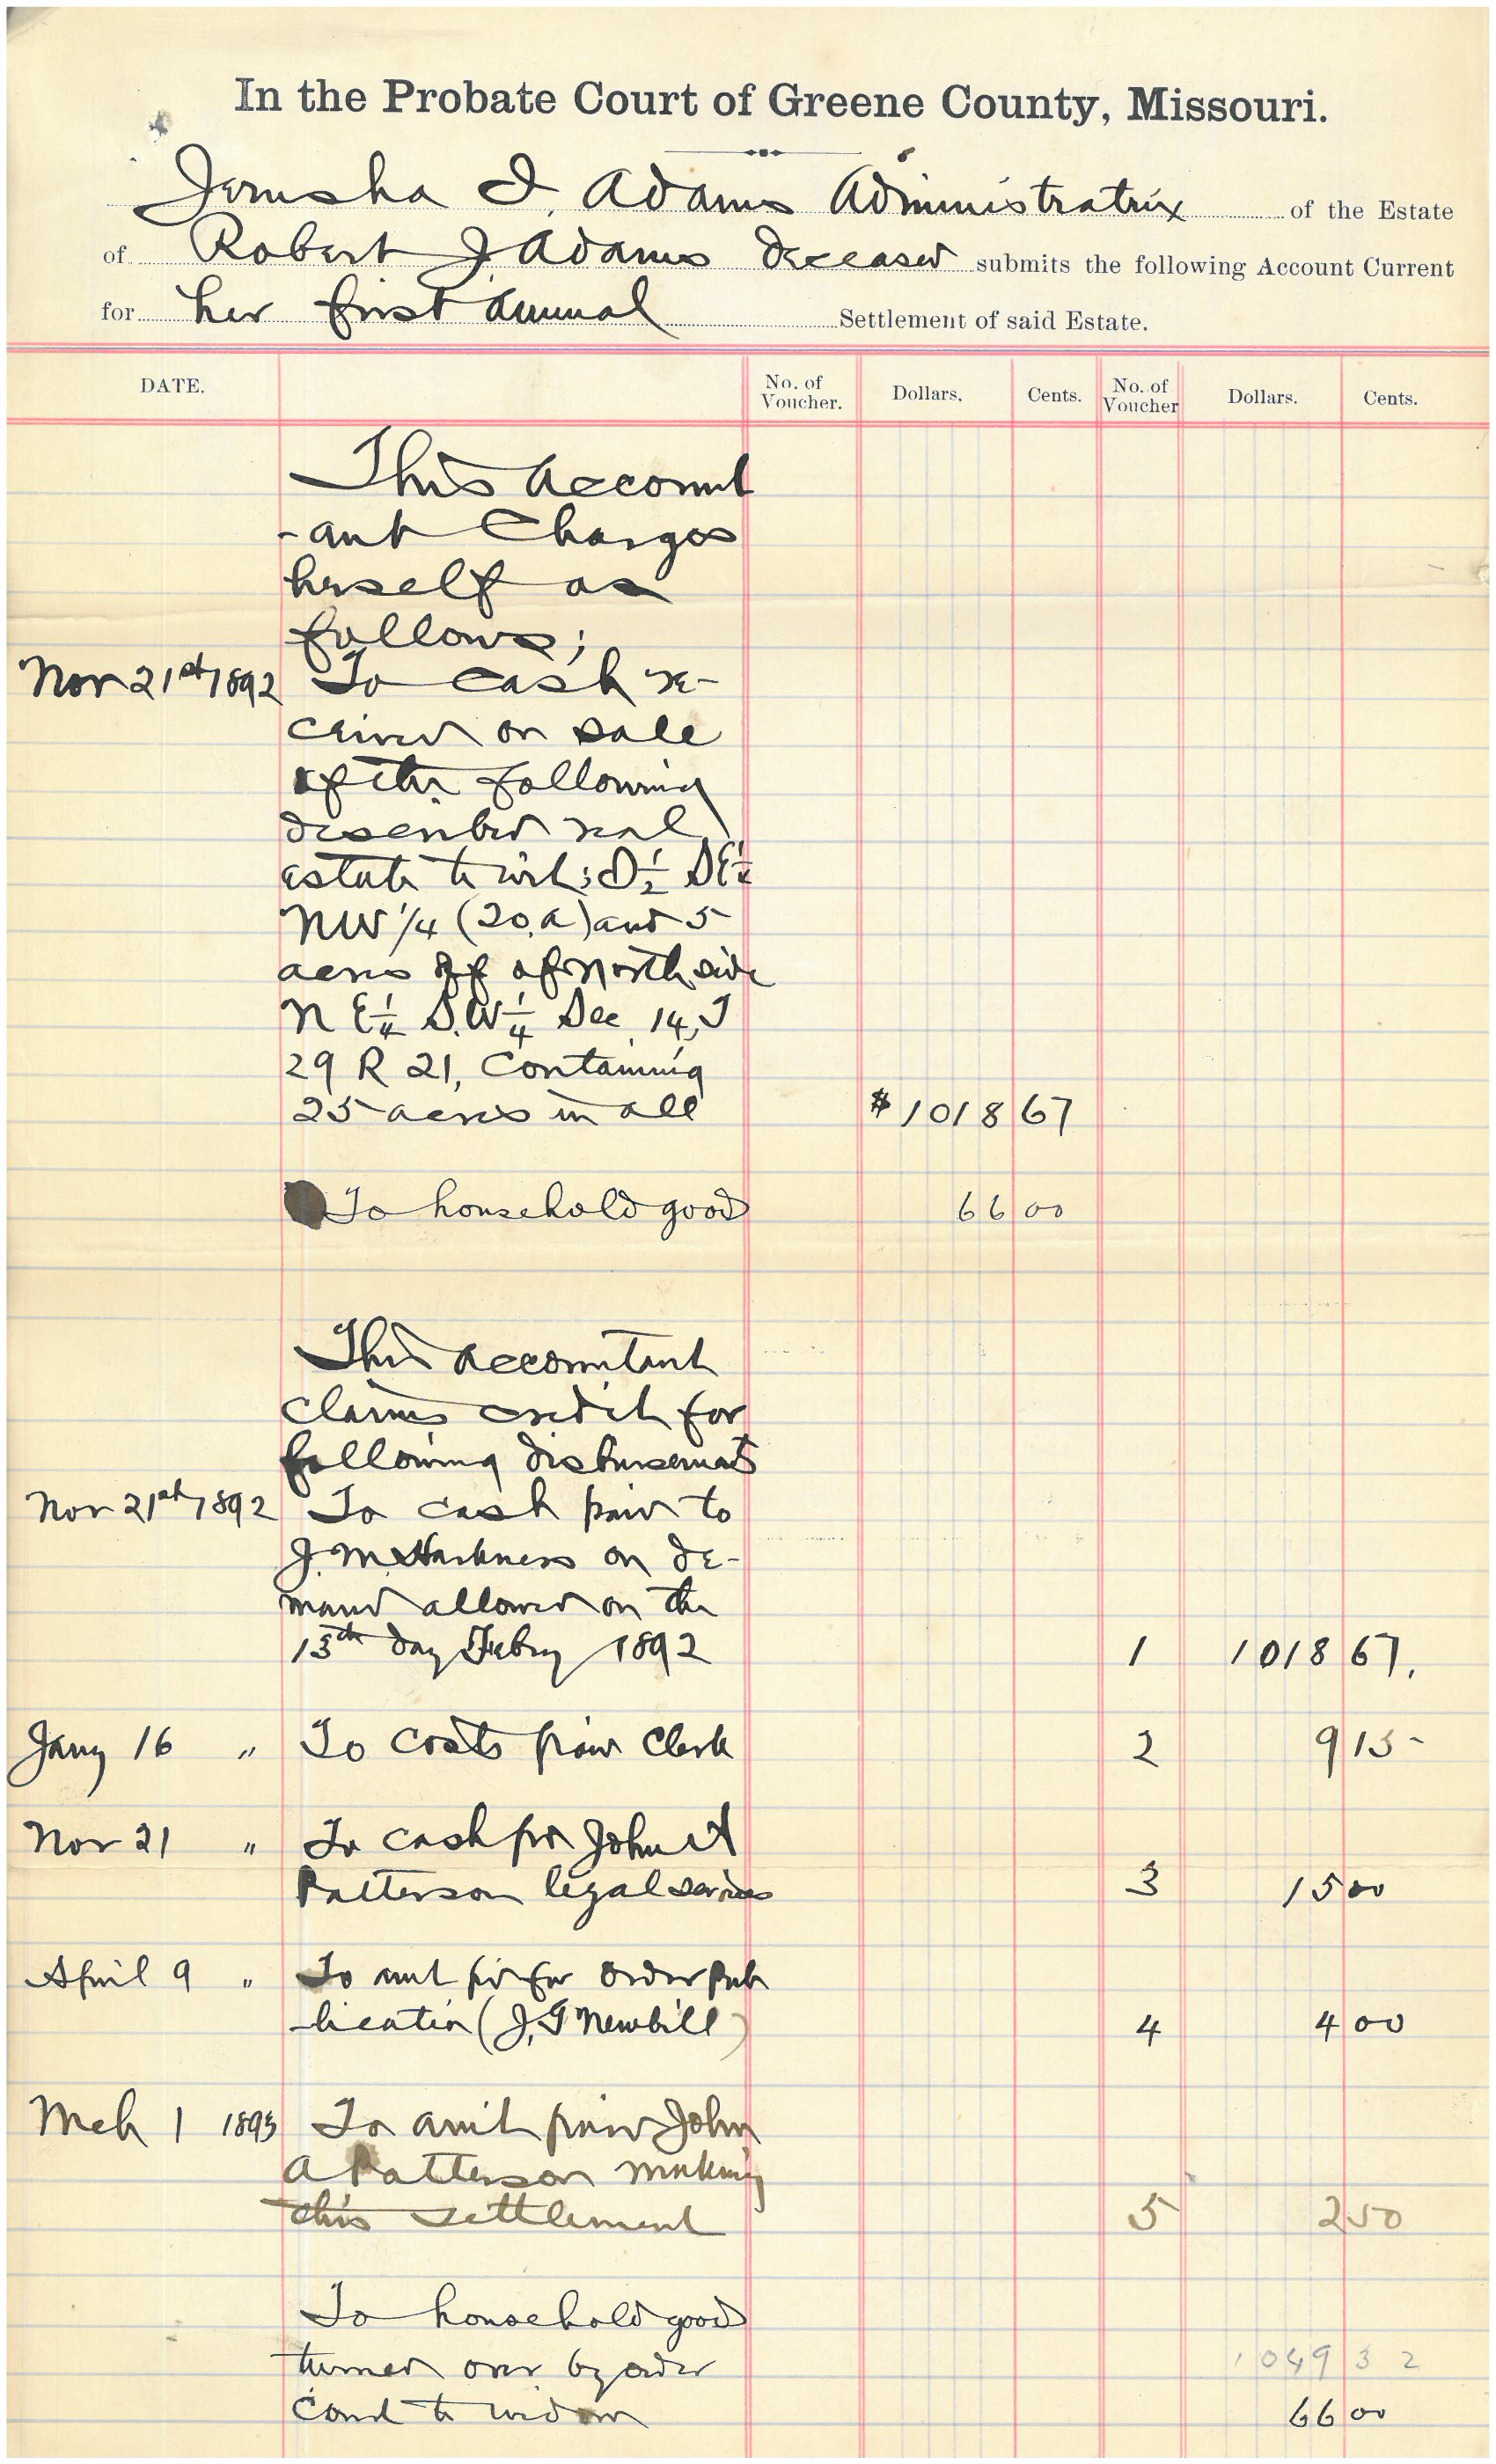 In the Probate Court of Greene County, Missouri.
Jerusha I. Adams Administratrix of the Estate
of Robert J. Adams deceased submits the following Account Current
for her first annual Settlement of said Estate.
DATE. No. of Voucher. Dollars. Cents. No. of Voucher Dollars. Cents.
This account
-ant charges
herself as
follows;
Nov 21st 1892 To cash re-
ceived on sale
of the following
described real
estate to wit; S 1/2 SE 1/4
NW 1/4 (20,a) and 5
acres off of north side
N E 1/4 S.W 1/4 Sec. 14, T
29 R 21, Containing
25 acres in all $1018 67
To household good 66 00
This accountant
claims credit for
following disbursements
Nov 21st 1892 To cash paid to
J. M. Harkness on de-
mand allowed on the
13th day Febry 1892 1 1018 67.
Jany 16 " To costs paid Clerk 2 9 15
Nov 21 " To cash pd John A
Patterson legal services 3 15 00
April 9 " To amt pd for order pub
-lication (J, G Newbill) 4 4 00
Mch 1 1893 To amt paid John
A Patterson making
this settlement 5 2 50
To household good
turned over by order 1049 32
Court to widow 66 00